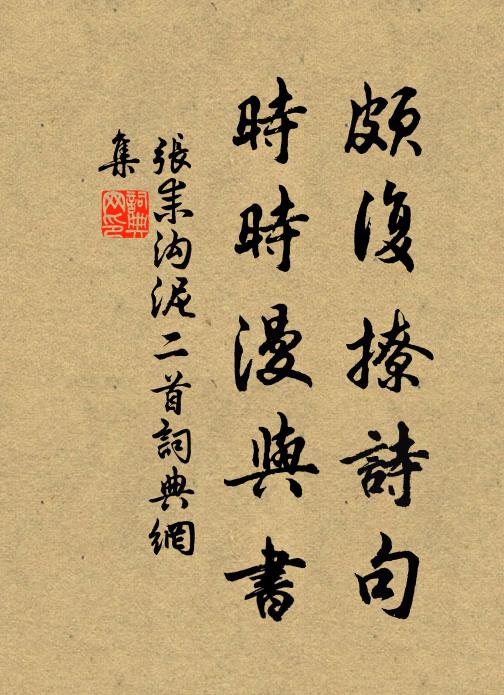 頗復撩詩句
時時漫與書
張耒沟泥二首詞典網
集
詞典
网印